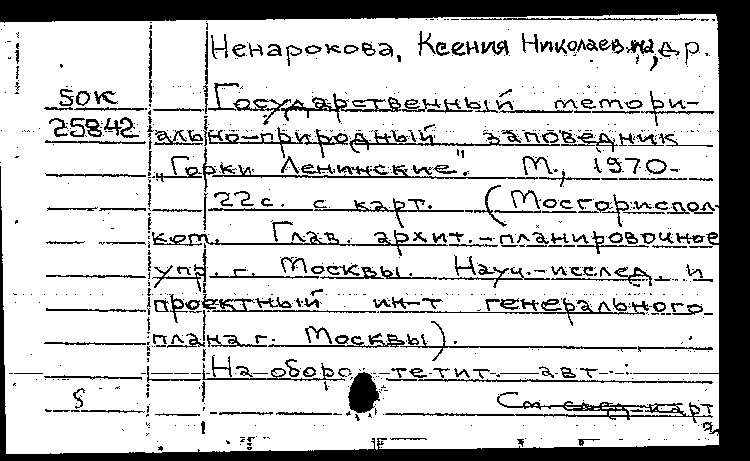 Ненарокова, Ксения Николаевна, др.
50К Государственный мемори-
25842 ально-природный заповедник
"Горки Ленинские". М., 1970-
22 с. с карт. (Мосгориспол-
ком. Глав. архит.-планировочное
упр. г. Москвы. Науч.-исслед. и
проектный ин-т генерального
плана г. Москвы).
На оборо те тит. авт.:
8 См. след. карт